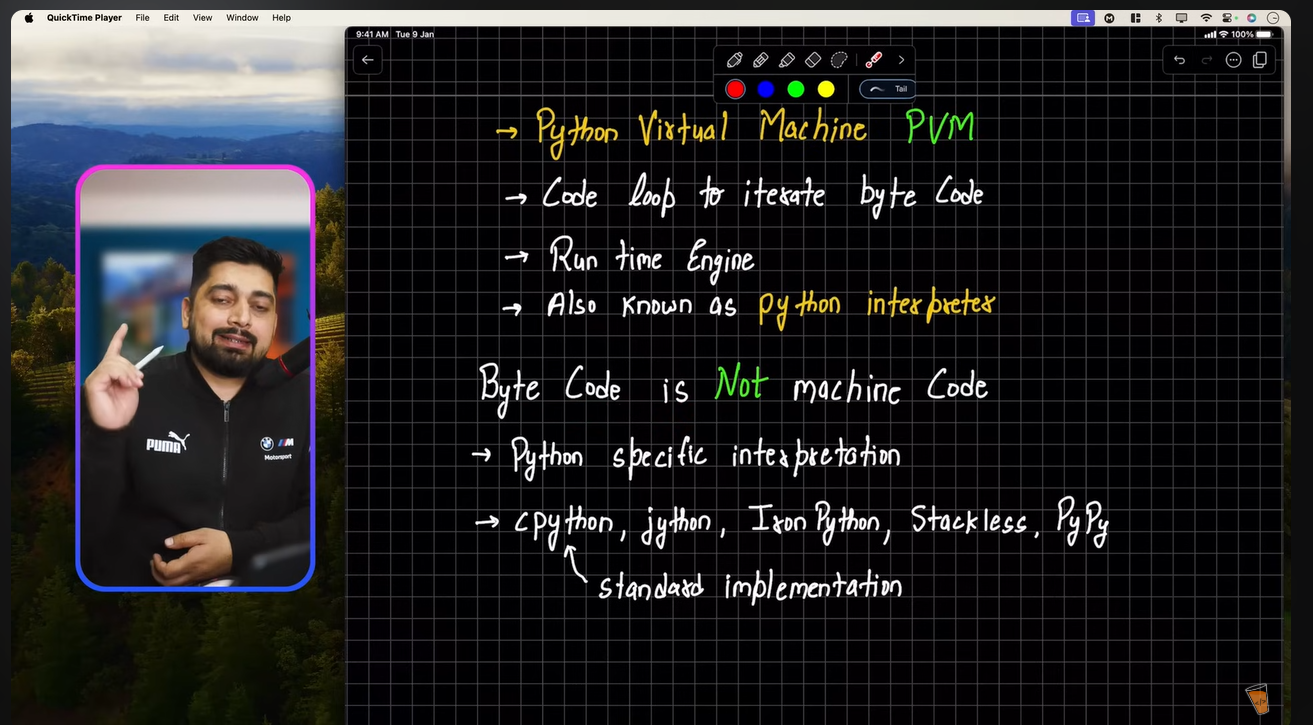 QuickTime Player File Edit View Window Help
9:41 AM Tue 9 Jan
100%
Tail
→ Python Virtual Machine PVM
→ Code loop to iterate byte Code
→ Run time Engine
→ Also known as python interpreter
Byte Code is Not machine Code
→ Python specific interpretation
→ cpython, jython, Iron Python, Stackless, PyPy
standard implementation
PUMA
M
Motorsport